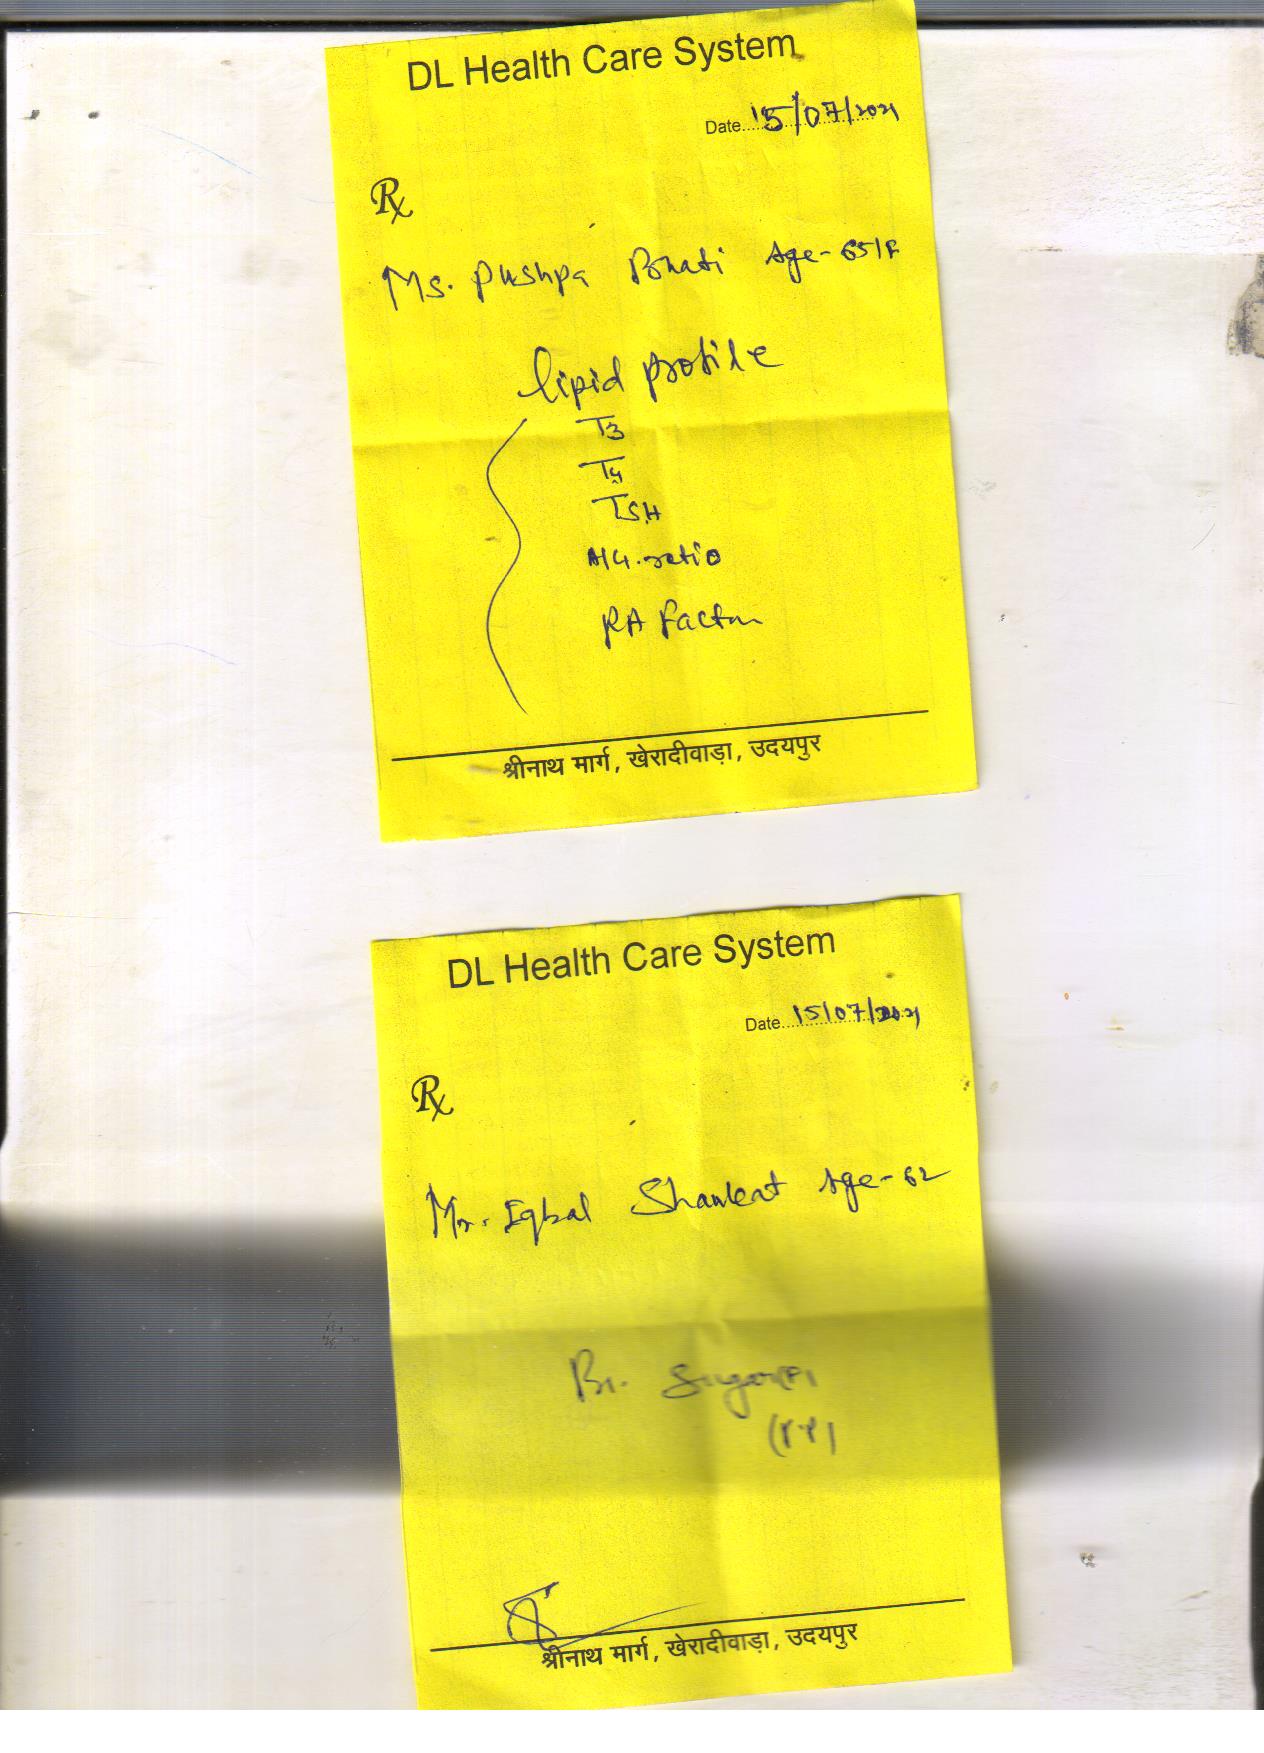 DL Health Care System
Date 15/07/2021
Rx
Ms. Pushpa Bhati Age-65/F
lipid profile
T3
T4
TSH
A/G.ratio
RA factor
श्रीनाथ मार्ग, खेरादीवाड़ा, उदयपुर
DL Health Care System
Date 15/07/2021
Rx
Mr. Iqbal Shaukat Age-62
Bl. Sugar(F)
(PP)
श्रीनाथ मार्ग, खेरादीवाड़ा, उदयपुर